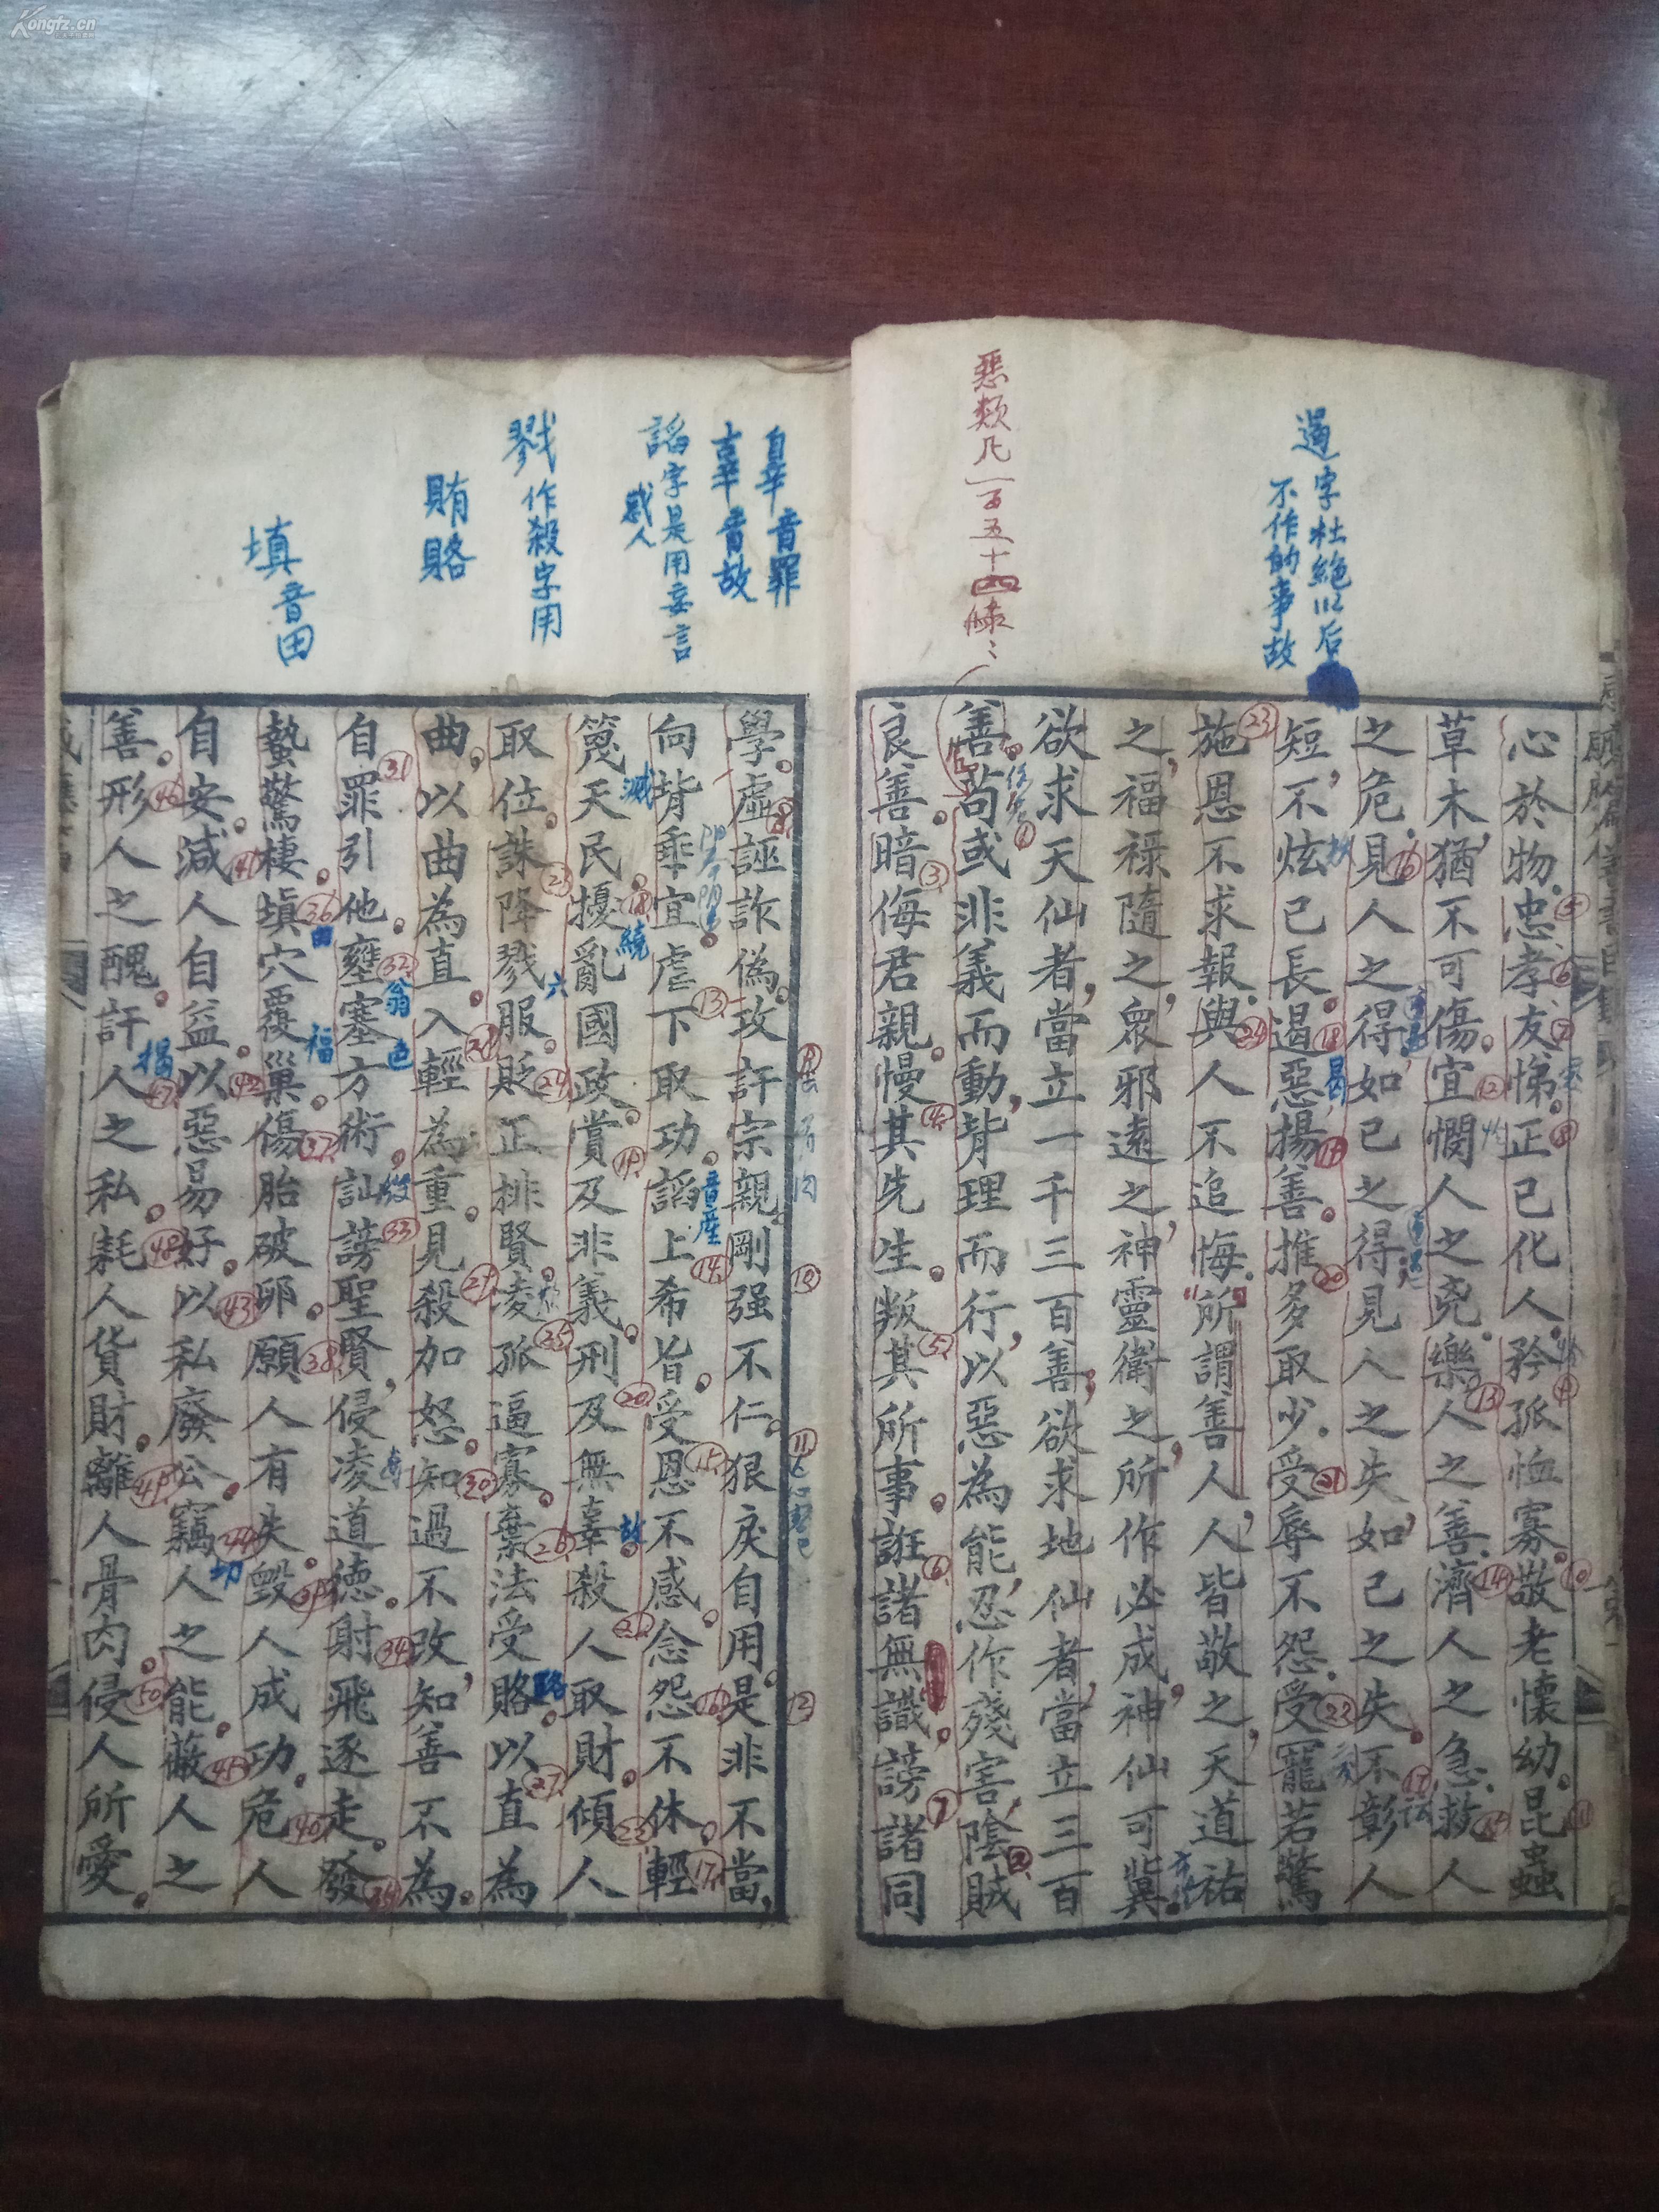 Kongfz.cn
遏字杜絶112后
不作的事故
惡類凡一百五十四條
心於物忠孝友悌正己化人矜孤恤寡敬老懷幼昆蟲
草木猶不可傷宜憫人之兇樂人之善濟人之急救人
之危見人之得如己之得見人之失如己之失不彰人
短不炫己長遏惡揚善推多取少受辱不怨受寵若驚
施恩不求報與人不追悔所謂善人人皆敬之天道祐
之福祿隨之衆邪遠之神靈衛之所作必成神仙可冀
欲求天仙者當立一千三百善欲求地仙者當立三百
善苟或非義而動背理而行以惡為能忍作殘害陰賊
良善暗侮君親慢其先生叛其所事誑諸無識謗諸同
辠音罪
辜音故
謟字是用妄言
惑人
戮作殺字用
賄賂
填音田
學虛誣詐偽攻訐宗親剛强不仁狠戾自用是非不當
向背乖宜虐下取功謟上希旨受恩不感念怨不休輕
篾天民擾亂國政賞及非義刑及無辜殺人取財傾人
取位誅降戮服貶正排賢凌孤逼寡棄法受賂以直為
曲以曲為直入輕為重見殺加怒知過不改知善不為
自罪引他壅塞方術訕謗聖賢侵凌道德射飛逐走發
蟄驚棲填穴覆巢傷胎破卵願人有失毀人成功危人
自安減人自益以惡易好以私廢公竊人之能蔽人之
善形人之醜訐人之私耗人貨財離人骨肉侵人所愛